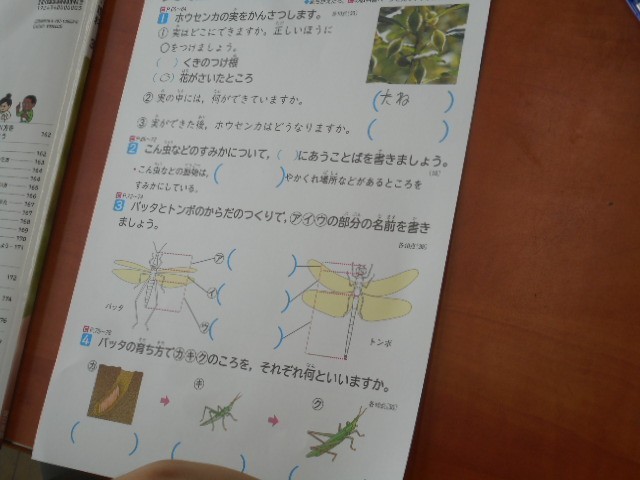 1 ホウセンカの実をかんさつします。
① 実はどこにできますか。正しいほうに
○をつけましょう。
( ) くきのつけ根
(○) 花がさいたところ
② 実の中には、何ができていますか。
(たね)
③ 実ができた後、ホウセンカはどうなりますか。
( )
2 こん虫などのすみかについて、( )にあうことばを書きましょう。
・こん虫などの動物は、( )やかくれ場所などがあるところを
すみかにしている。
3 バッタとトンボのからだのつくりで、㋐㋑㋒の部分の名前を書き
ましょう。
㋐( )
㋑( )
㋒( )
バッタ
トンボ
4 バッタの育ち方で㋕㋖㋗のころを、それぞれ何といいますか。
㋕
㋖
㋗
( )
162
163
164
164
165
166
167
167
168
170
171
172
174
176